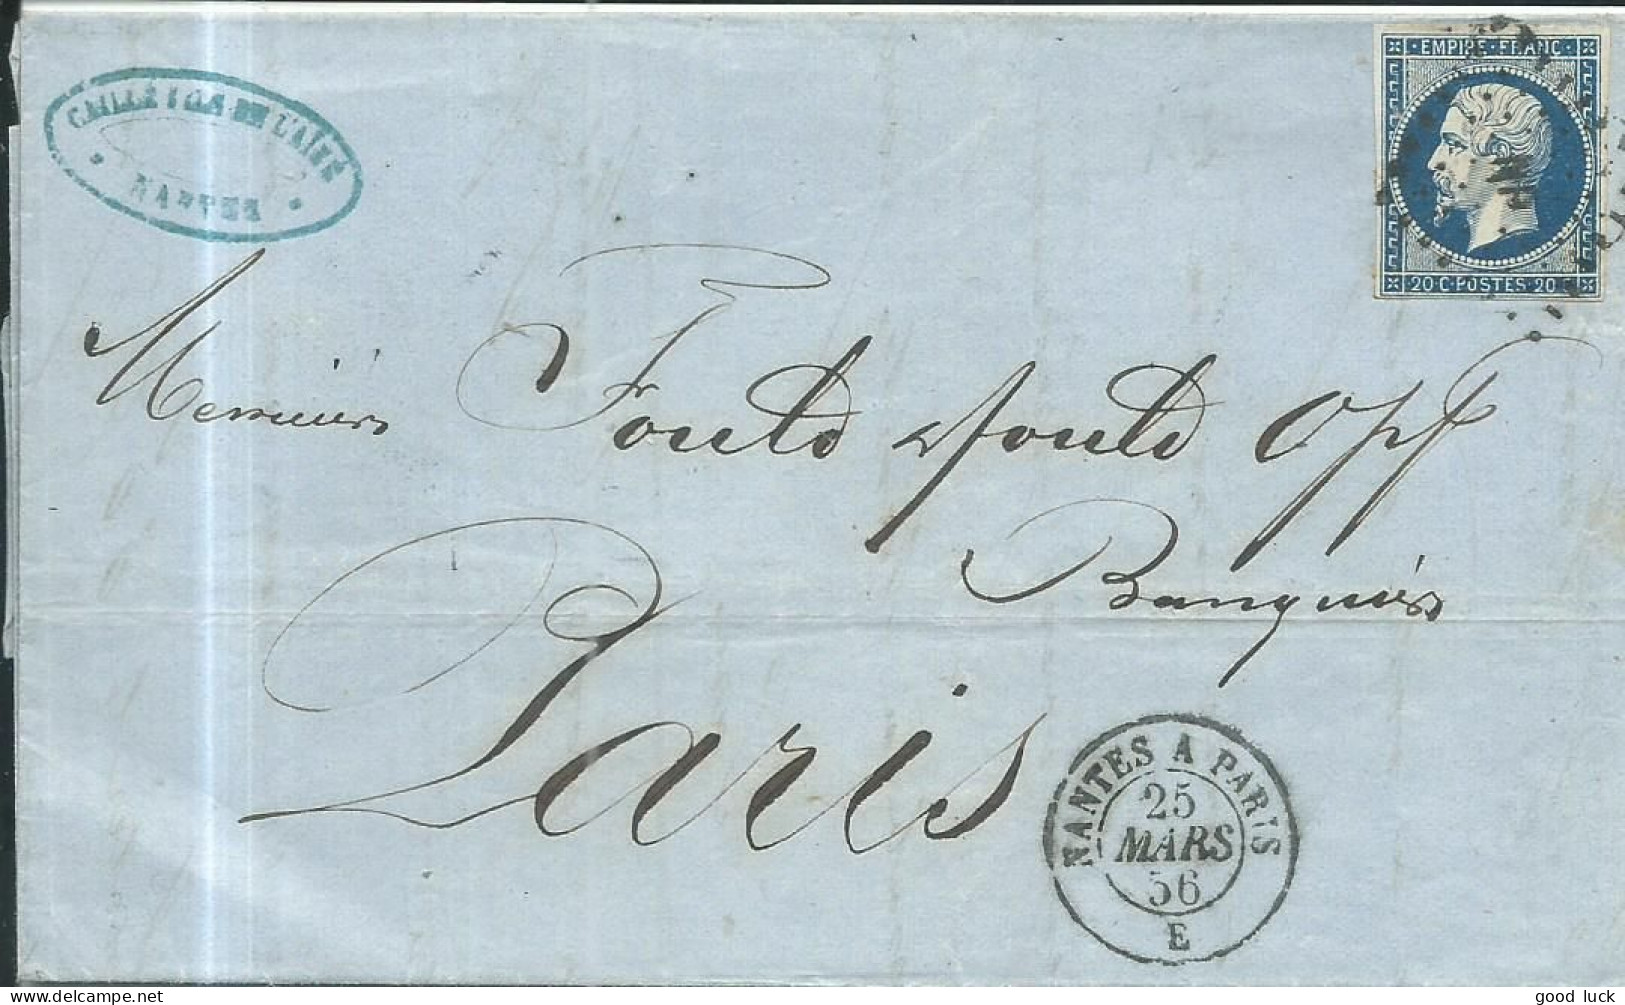 CAILLÉ FILS DE L'AINÉ
NANTES
EMPIRE · FRANC ·
20 C · POSTES · 20 C
Messieurs Fould & Fould Opp
Banquiers
Paris
NANTES A PARIS
25
MARS
56
E
good luck